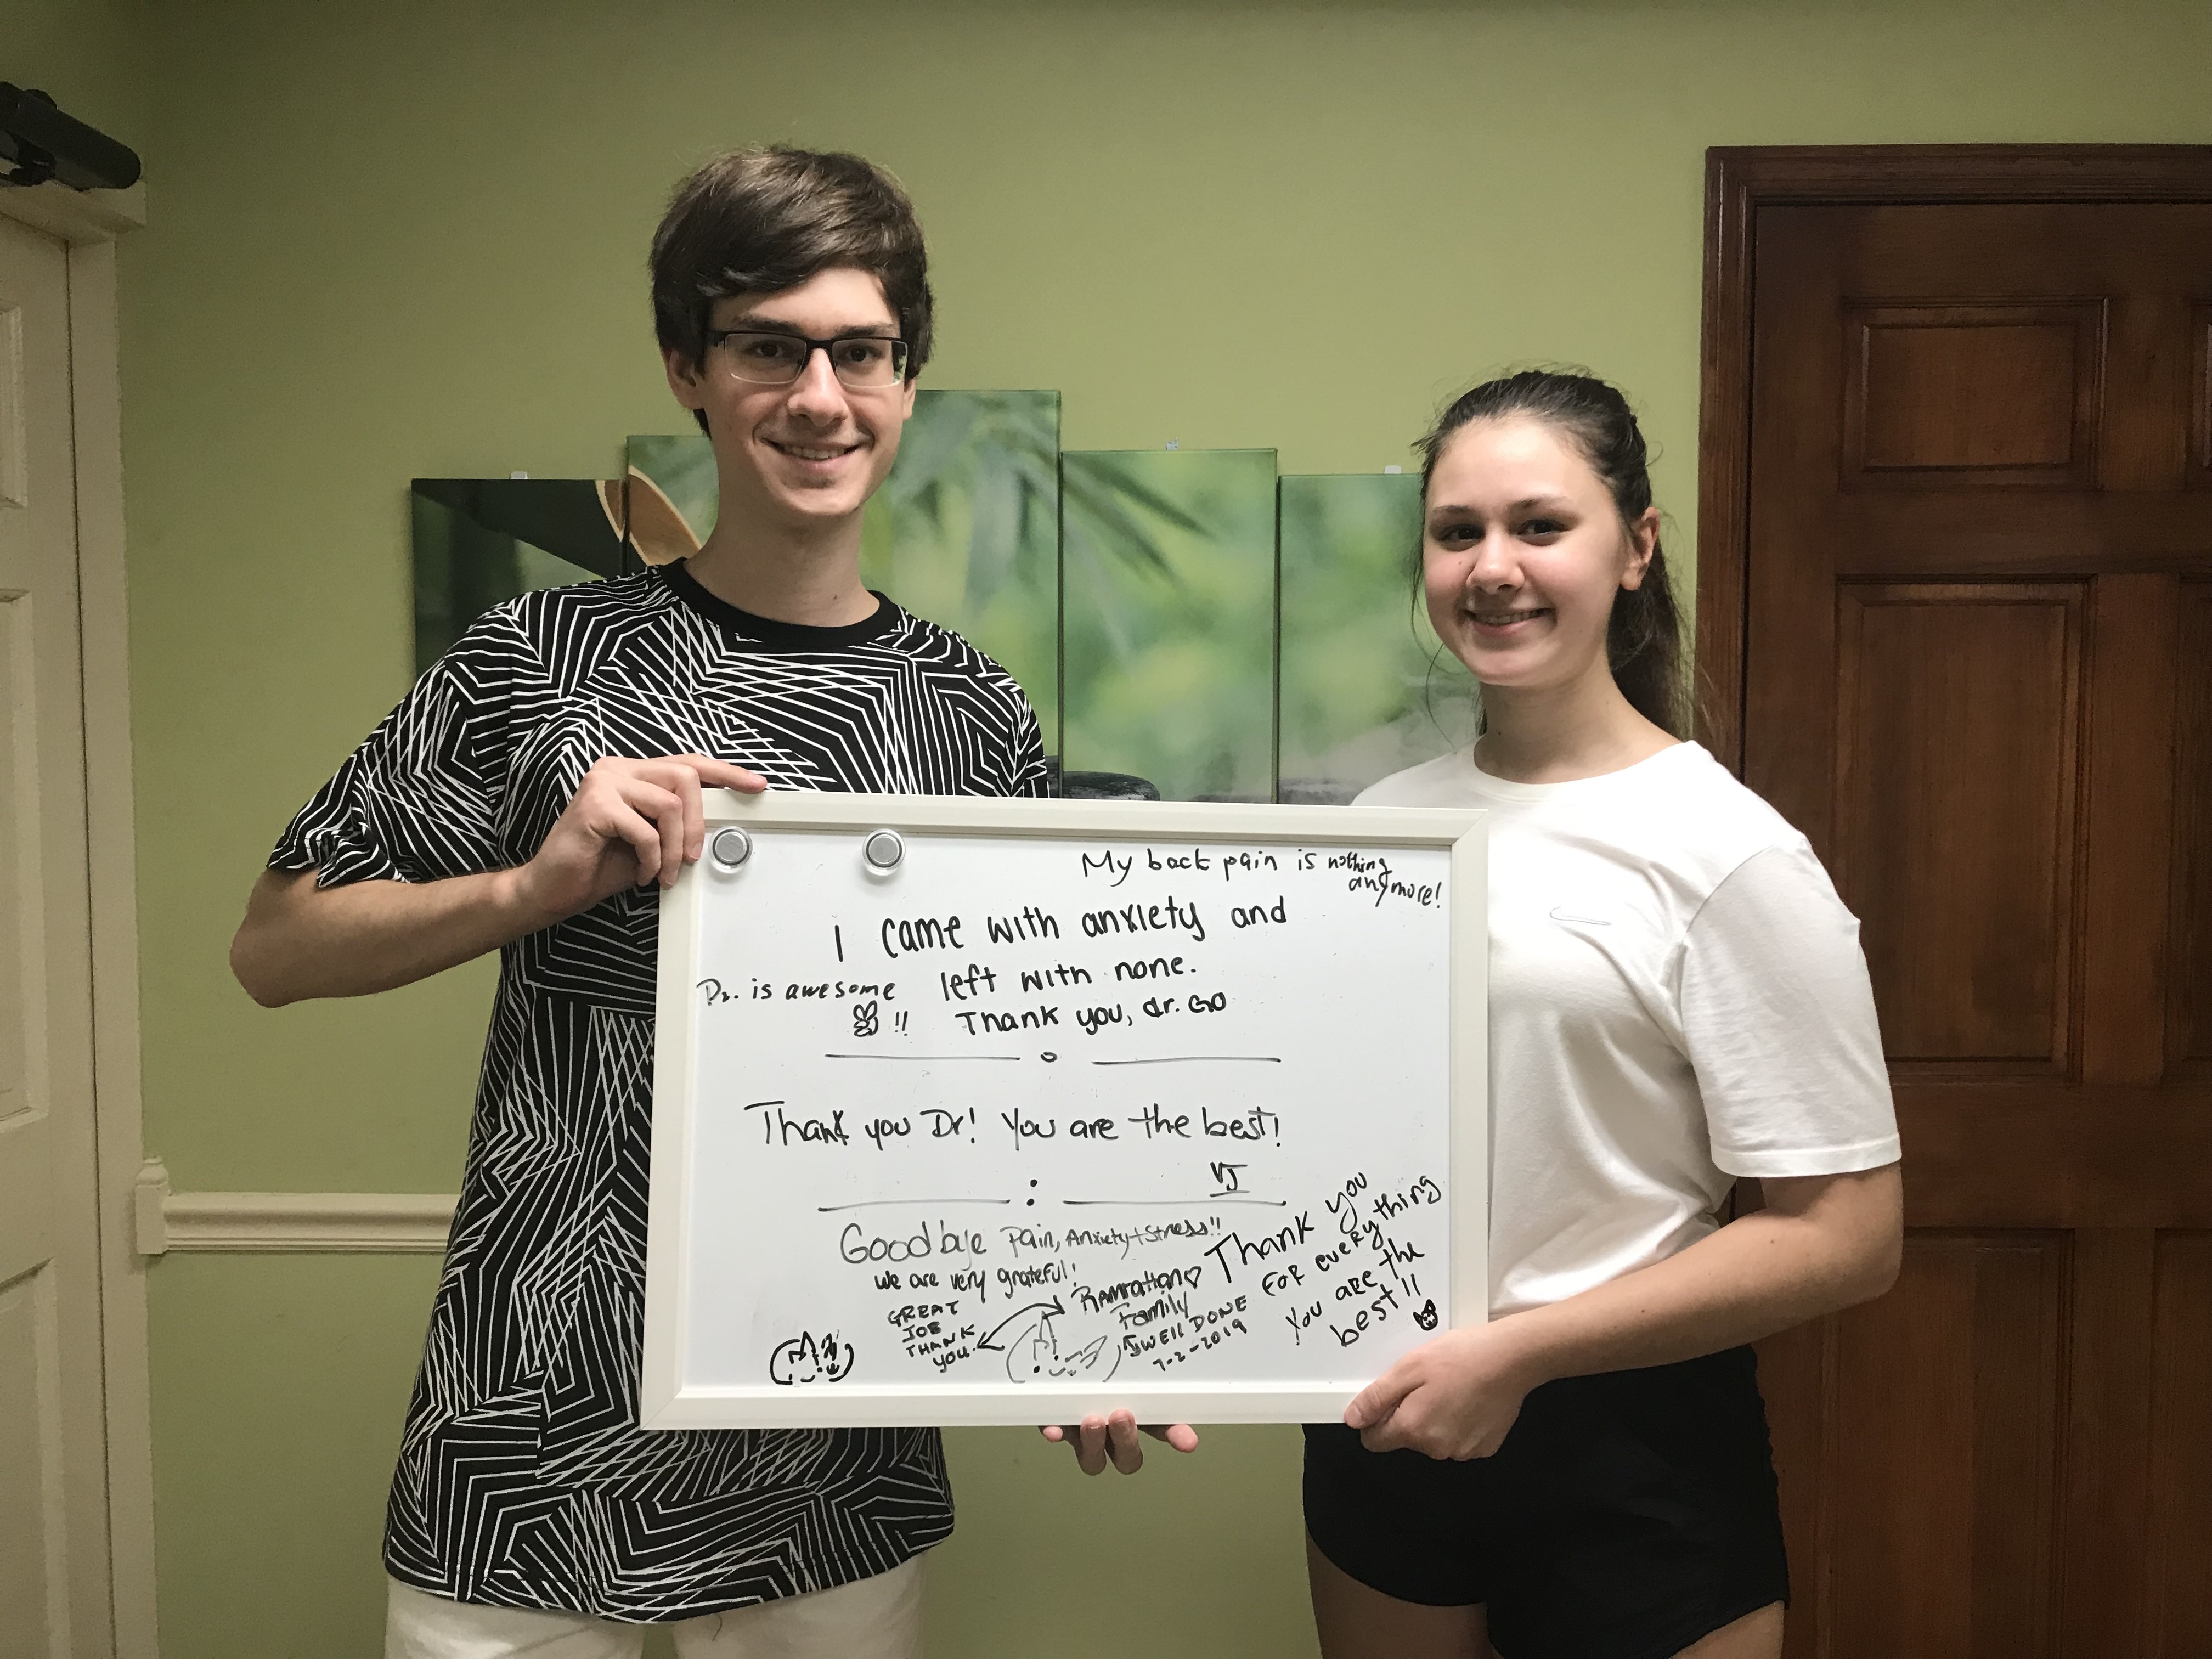 My back pain is nothing
anymore!
I came with anxiety and
left with none.
Thank you, dr. GO
Dr. is awesome
!!
Thank you Dr! You are the best!
VJ
Goodbye Pain, Anxiety + Stress!!
We are very grateful!
Family
GREAT
JOB
THANK
YOU.
WELL DONE
7-2-2019
Thank you
FOR everything
You are the
best!!